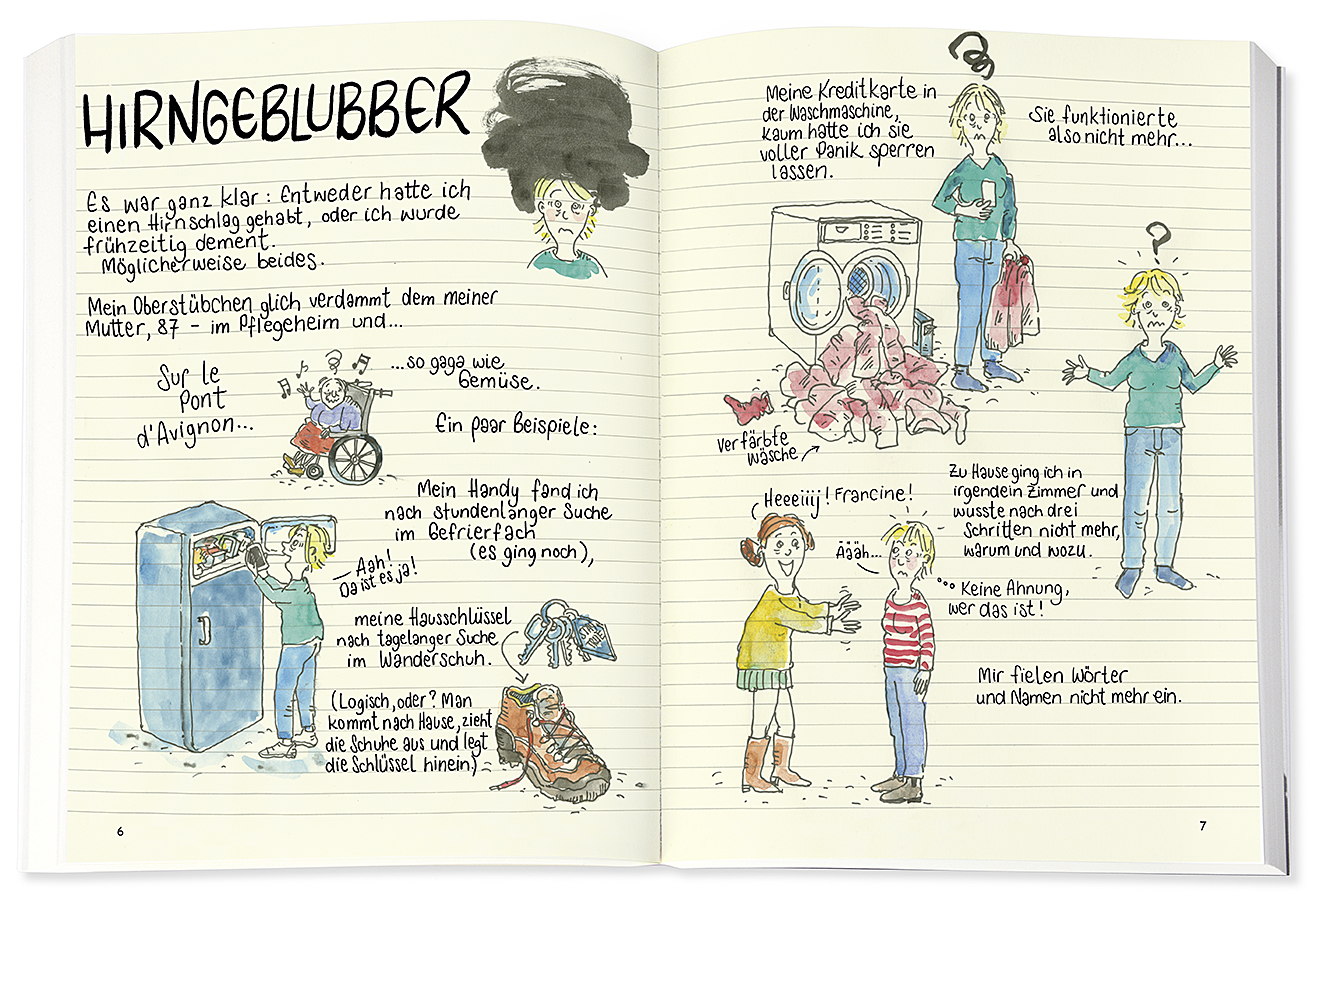 HIRNGEBLUBBER
Es war ganz klar: Entweder hatte ich
einen Hirnschlag gehabt, oder ich wurde
frühzeitig dement.
Möglicherweise beides.
Mein Oberstübchen glich verdammt dem meiner
Mutter, 87 – im Pflegeheim und...
...so gaga wie
Gemüse.
Sur le
Pont
d'Avignon...
Ein paar Beispiele:
Mein Handy fand ich
nach stundenlanger Suche
im Gefrierfach
(es ging noch),
Aah!
Da ist es ja!
meine Hausschlüssel
nach tagelanger Suche
im Wanderschuh.
(Logisch, oder? Man
kommt nach Hause, zieht
die Schuhe aus und legt
die Schlüssel hinein)
6
Meine Kreditkarte in
der Waschmaschine,
kaum hatte ich sie
voller Panik sperren
lassen.
Sie funktionierte
also nicht mehr...
verfärbte
Wäsche
Zu Hause ging ich in
irgendein Zimmer und
wusste nach drei
Schritten nicht mehr,
warum und wozu.
Heeeiiij! Francine!
Äääh...
Keine Ahnung,
wer das ist!
Mir fielen Wörter
und Namen nicht mehr ein.
7